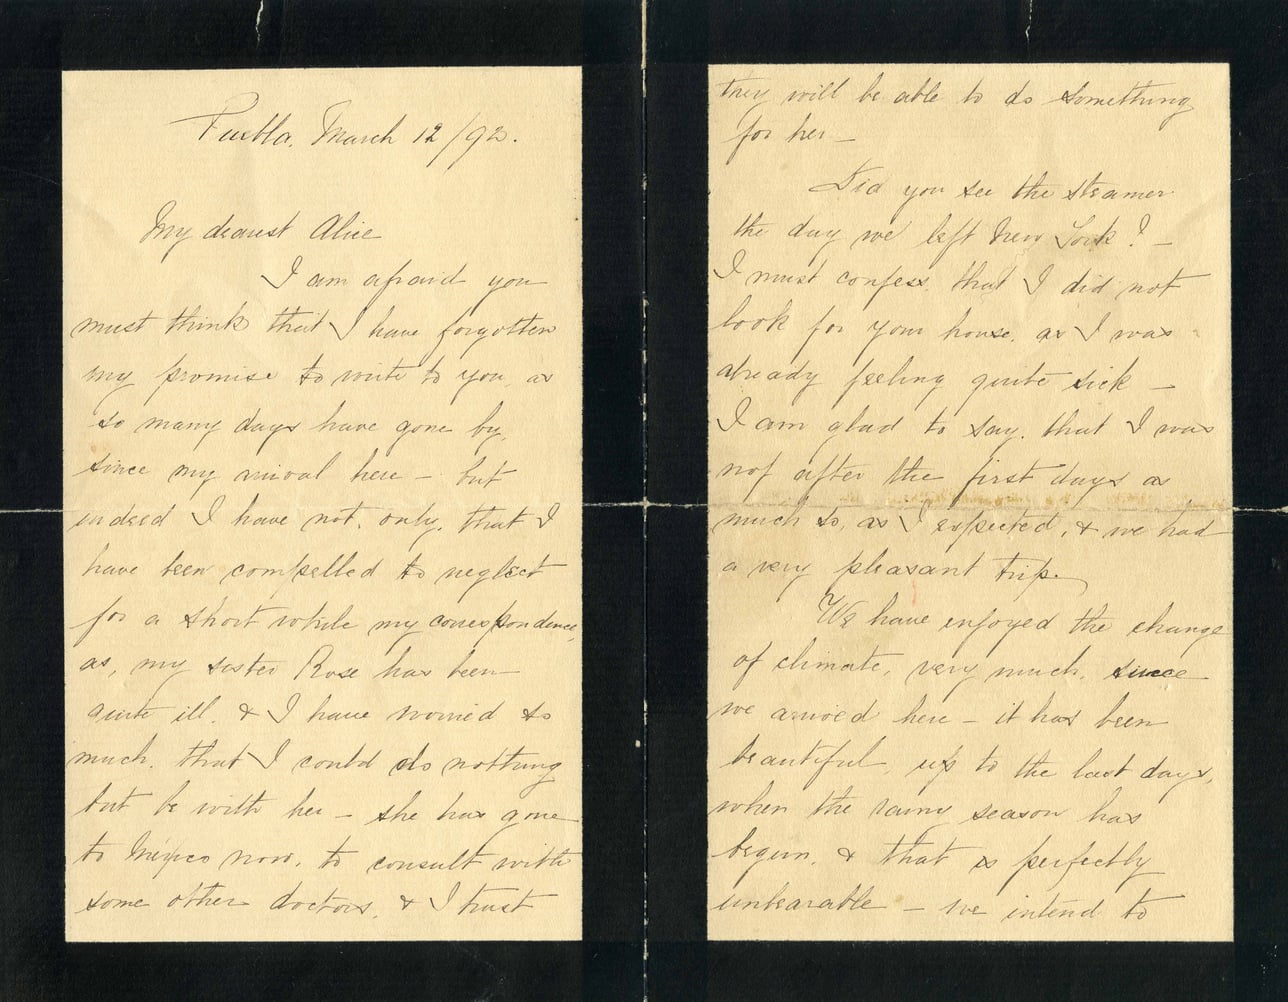 Puebla, March 12/92.
My dearest Alice
I am afraid you
must think that I have forgotten
my promise to write to you, as
so many days have gone by,
since my arrival here – but
indeed I have not, only, that I
have been compelled to neglect
for a short while my correspondence,
as, my sister Rose has been
quite ill, & I have worried so
much, that I could do nothing
but be with her – she has gone
to Mexico now, to consult with
some other doctors, & I trust
they will be able to do something
for her –
Did you see the steamer
the day we left New York? –
I must confess, that I did not
look for your house, as I was
already feeling quite sick –
I am glad to say, that I was
not after the first days as
much so, as I expected, & we had
a very pleasant trip.
We have enjoyed the change
of climate, very much, since
we arrived here – it has been
beautiful, up to the last days,
when the rainy season has
begun, & that is perfectly
unbearable – we intend to